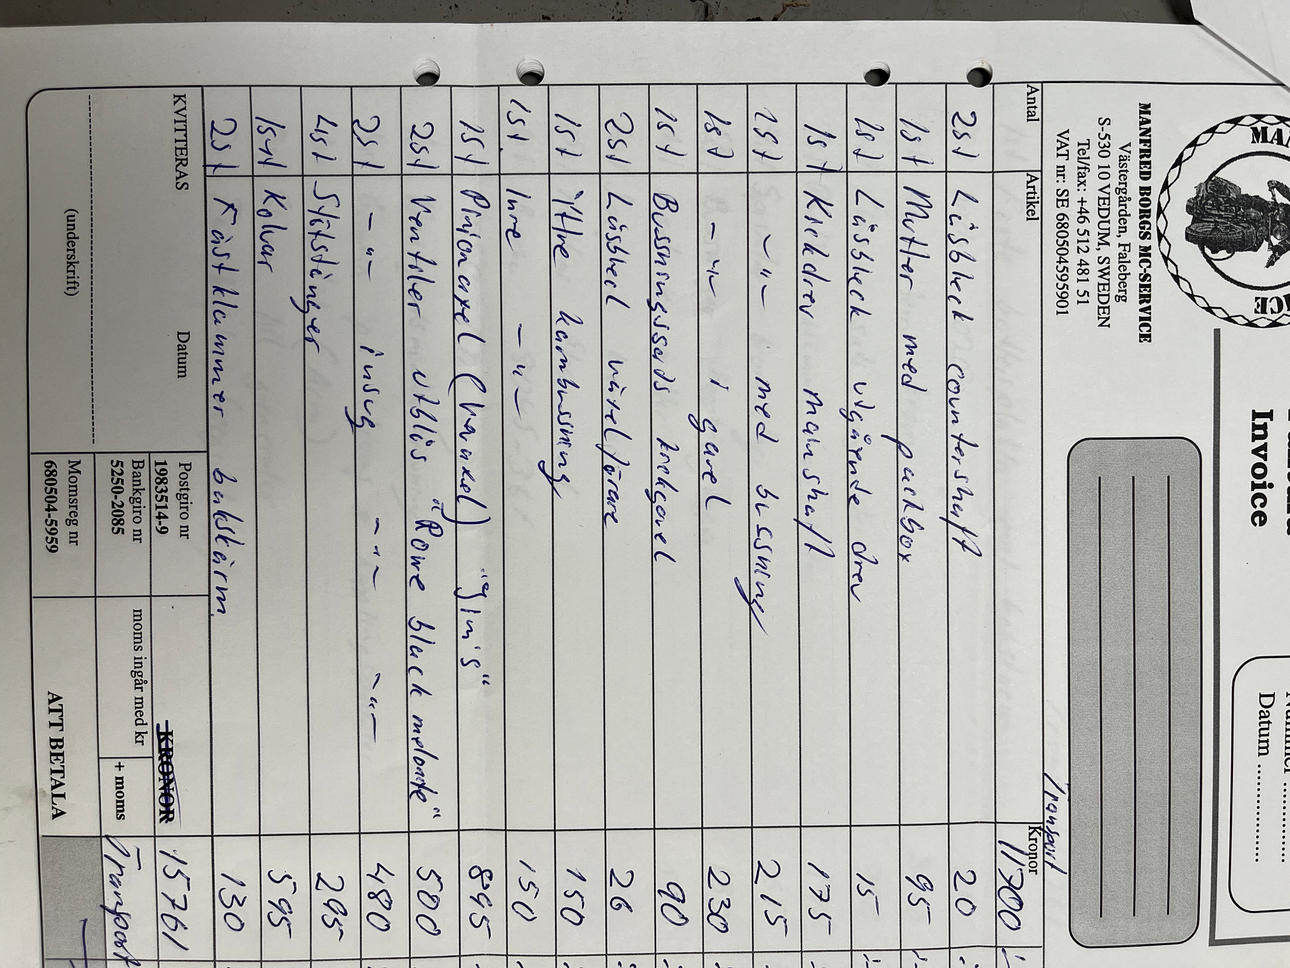 MAN
CE
MANFRED BORGS MC-SERVICE
Västergården, Faleberg
S-530 10 VEDUM, SWEDEN
Tel/fax: +46 512 481 51
VAT nr: SE 680504595901
Invoice
Datum
Transport
Antal Artikel Kronor
11700
2st Låsbleck countershaft 20
1st Mutter med packbox 95
1st Låsbleck utgående drev 15
1st Kickdrev mainshaft 175
1st -"- med bussning 215
1st -"- i gavel 230
1st Bussningssats kickgavel 90
2st Låsbleck växelförare 26
1st Yttre kambussning 150
1st Inre -"- 150
1st Pinionaxel (vauxel) "Jim's" 895
2st Ventiler utblås "Rowe black melonite" 500
2st -"- insug -"- -"- 480
4st Stötstänger 295
1st Kolvar 595
2st Fästklammer bakskärm 130
KVITTERAS Datum
(underskrift)
Postgiro nr
1983514-9
Bankgiro nr
5250-2085
Momsreg nr
680504-5959
KRONOR 15761
moms ingår med kr + moms Transport
ATT BETALA